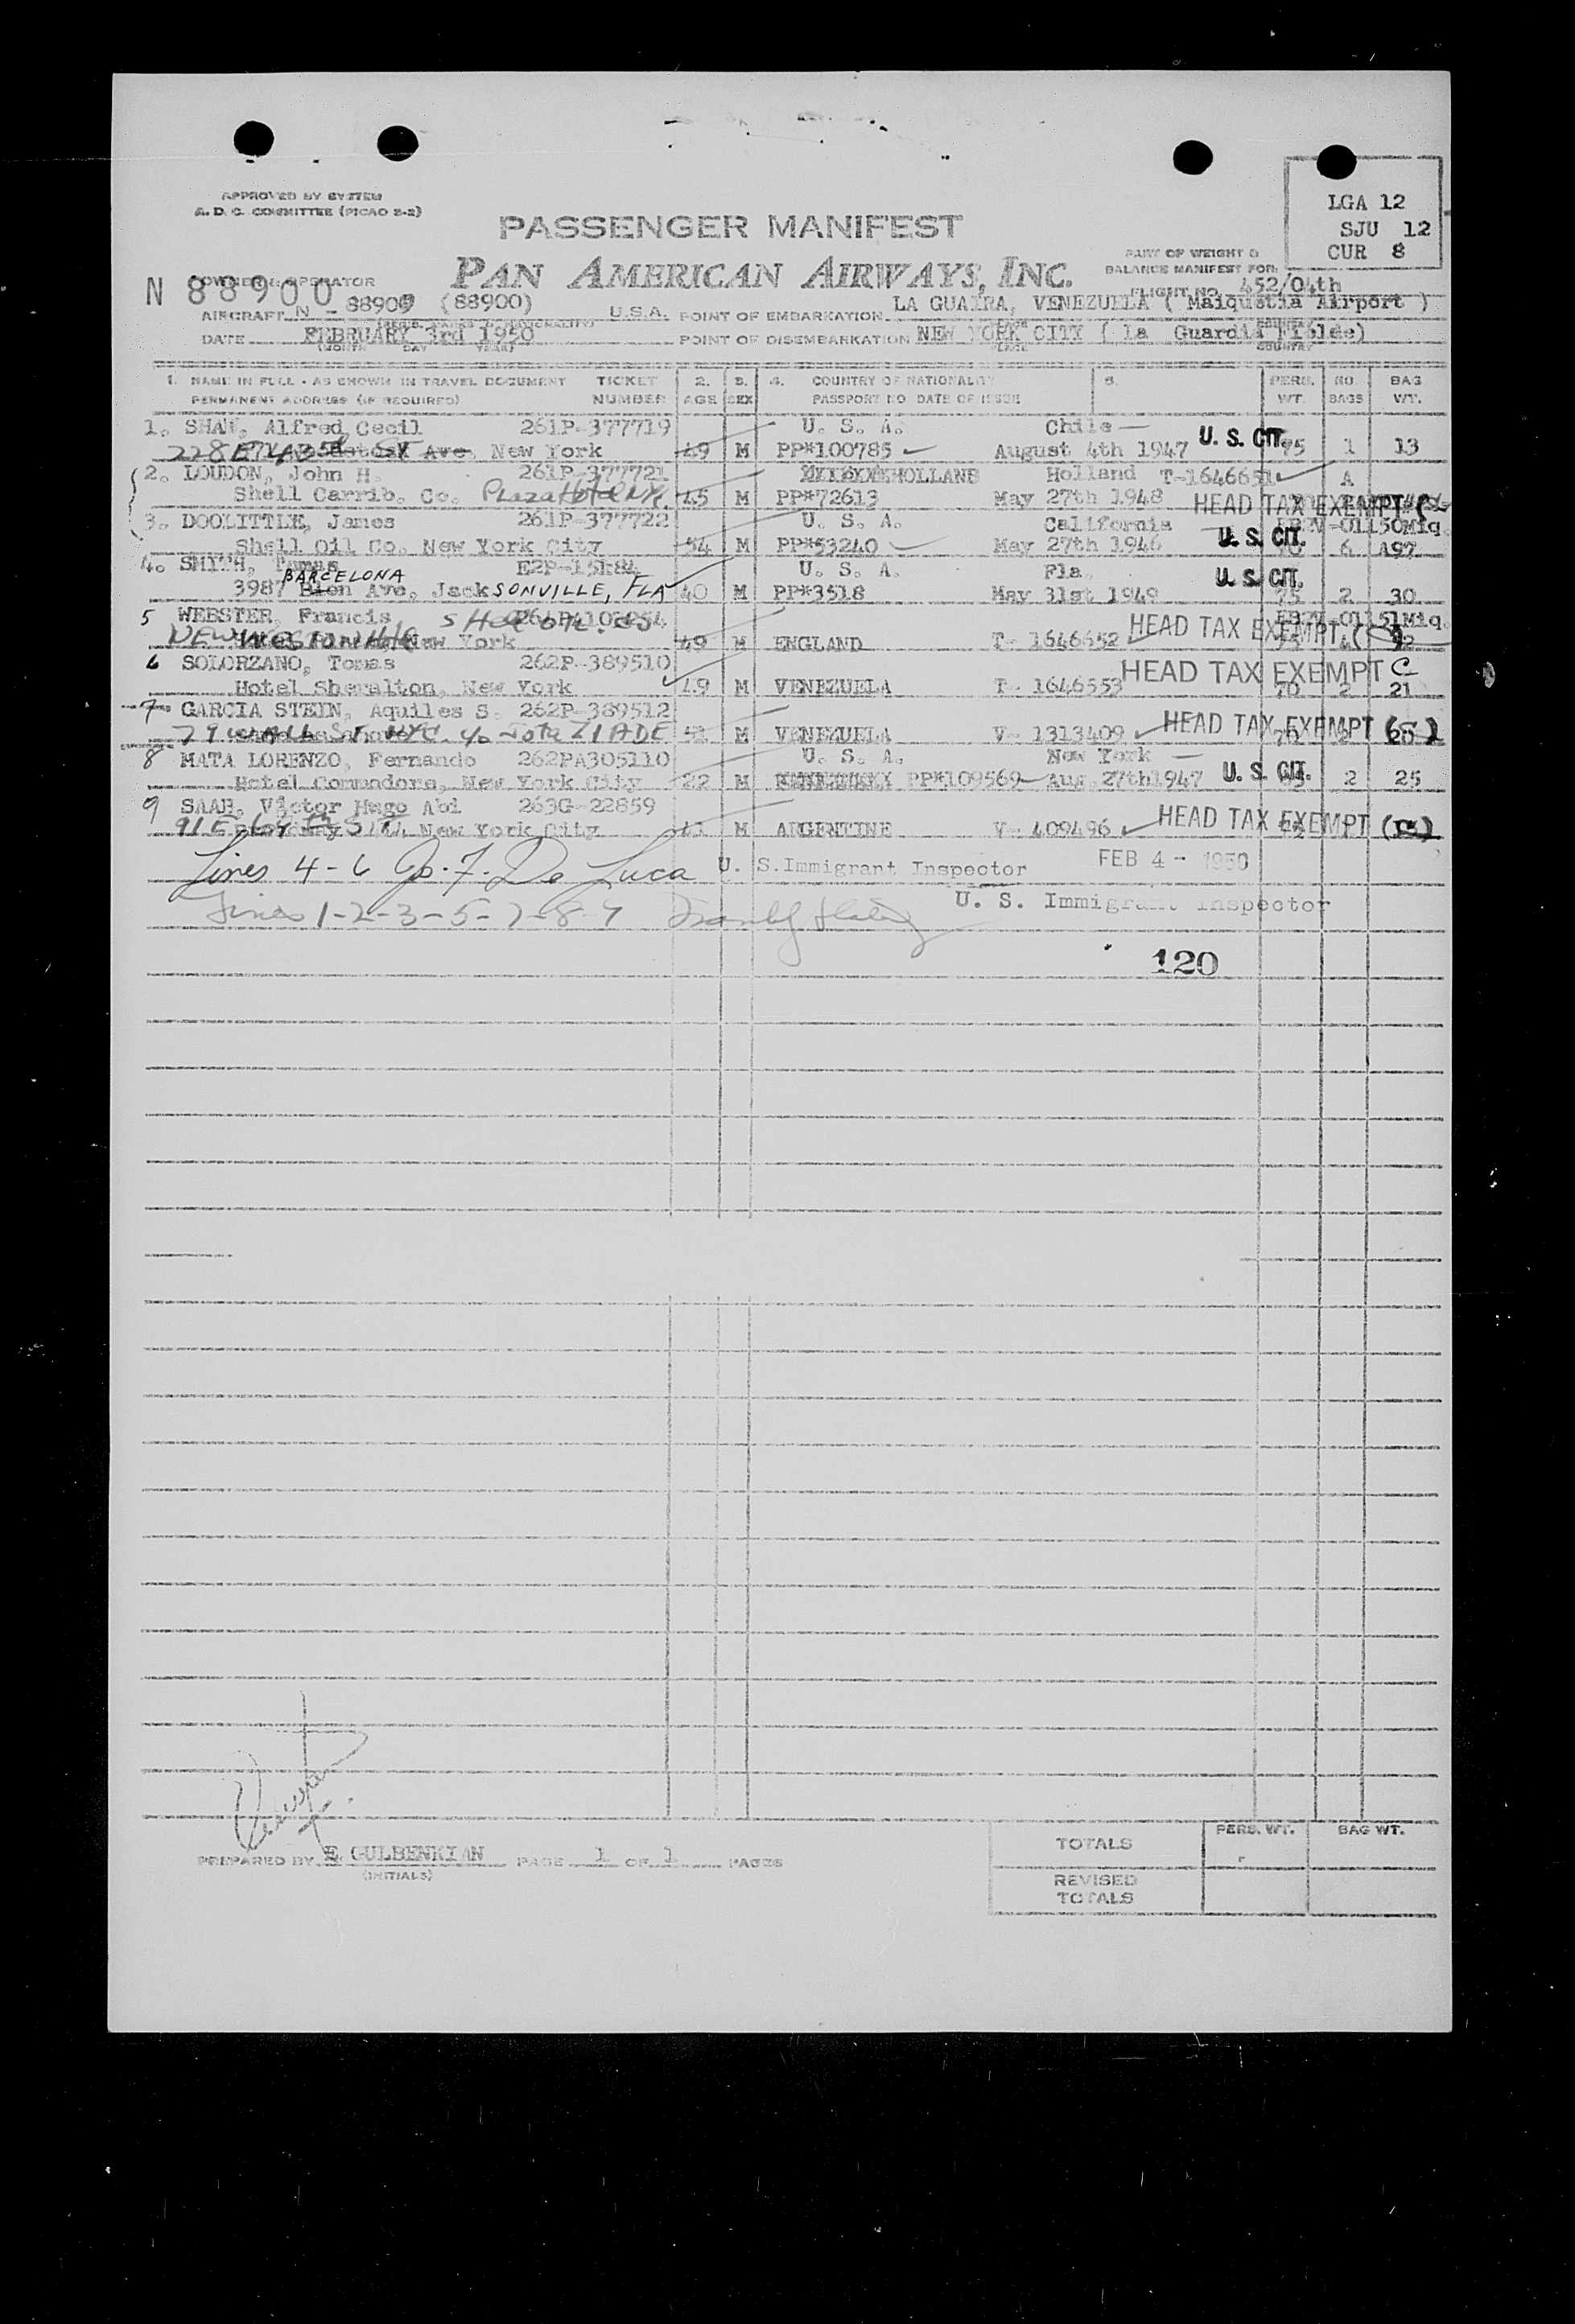 APPROVED BY SYSTEM
A. D. C. COMMITTEE (PICAO 2-2)
LGA 12
SJU 12
CUR 8
PASSENGER MANIFEST
PAN AMERICAN AIRWAYS, INC.
PART OF WEIGHT &
BALANCE MANIFEST FOR:
FLIGHT NO. 452/04th
N 88900
OWNER OR OPERATOR
AIRCRAFT N - 88900 (88900) U.S.A. POINT OF EMBARKATION LA GUAIRA, VENEZUELA ( Maiquetia Airport )
DATE FEBRUARY 3rd 1950 POINT OF DISEMBARKATION NEW YORK CITY ( La Guardia Fielde)
(MONTH DAY YEAR) PLACE COUNTRY
1. NAME IN FULL - AS SHOWN IN TRAVEL DOCUMENT TICKET 2. 3. 4. COUNTRY OF NATIONALITY 5. PERS. NO. BAG
PERMANENT ADDRESS (IF REQUIRED) NUMBER AGE SEX PASSPORT NO DATE OF ISSUE WT. BAGS WT.
1. SHAW, Alfred Cecil 261P-377719 U. S. A. Chile U. S. CIT.
228 E 43rd St Ave, New York 49 M PP*100785 August 4th 1947 75 1 13
2. LOUDON, John H. 261P-377721 HOLLAND Holland T-1646651 A
Shell Carrib. Co. Plaza Hotel NY. 45 M PP*72613 May 27th 1948 HEAD TAX EXEMPT
3. DOOLITTLE, James 261P-377722 U. S. A. California U. S. CIT. -01150Miq.
Shell Oil Co. New York City 54 M PP*53240 May 27th 1946 6 A97
4. SMYTH, Tomas E2P-15484 U. S. A. Fla. U. S. CIT.
BARCELONA
3987 Ave, JackSONVILLE, FLA 40 M PP*3518 May 31st 1949 75 2 30
5 WEBSTER, Francis Shell Oil Co. -01151Miq.
NEW WESTON HTL New York 49 M ENGLAND T- 1646652 HEAD TAX EXEMPT
6 SOLORZANO, Tomas 262P-389510 HEAD TAX EXEMPT C
Hotel Sheralton, New York 49 M VENEZUELA T- 1646553 70 2 21
7 GARCIA STEIN, Aquiles S. 262P-389512 HEAD TAX EXEMPT
79 WALL ST NYC. c/o M VENEZUELA V- 1313409 20
8 MATA LORENZO, Fernando 262PA305110 U. S. A. New York U. S. CIT.
Hotel Commodore, New York City 22 M PP*109569 Aug.27th1947 2 25
9 SAAB, Victor Hugo Abi 263G-22859 HEAD TAX EXEMPT
91 E St. New York City M ARGENTINE V- 409496
Lines 4-6 Jo. F. De Luca U. S. Immigrant Inspector FEB 4 - 1950
Lines 1-2-3-5-7-8-9 U. S. Immigrant Inspector
120
PREPARED BY E GULBENKIAN PAGE 1 OF 1 PAGES
(INITIALS)
PERS. WT. BAG WT.
TOTALS
REVISED
TOTALS